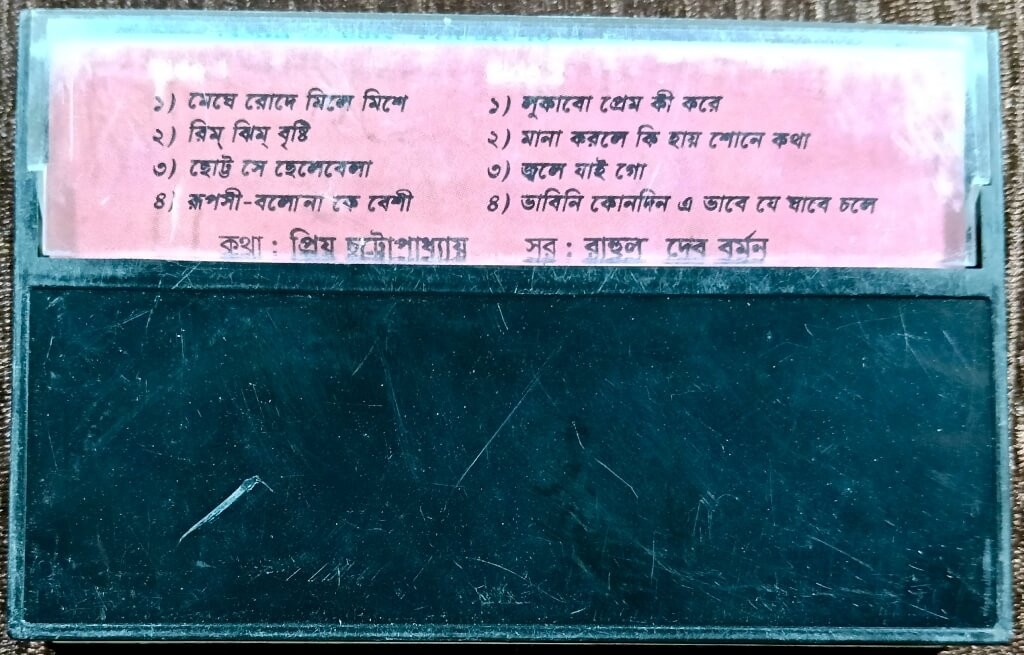 ১) মেঘে রোদে মিলে মিশে
২) রিম্ ঝিম্ বৃষ্টি
৩) ছোট্ট সে ছেলেবেলা
৪) রূপসী-বলোনা কে বেশী
১) লুকাবো প্রেম কী করে
২) মানা করলে কি হায় শোনে কথা
৩) জ্বলে যাই গো
৪) ভাবিনি কোনদিন এ ভাবে যে যাবে চলে
কথা : প্রিয় চট্টোপাধ্যায় সুর : রাহুল দেব বর্মন